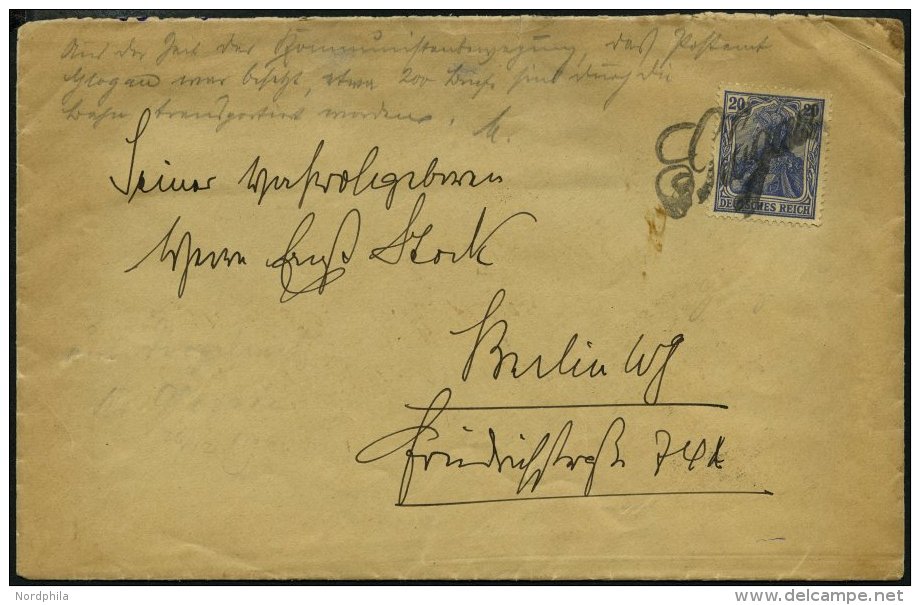 Aus der Zeit der Kommunistenbewegung, das Postamt
Glogau war besetzt, etwa 200 Briefe sind durch die
Bahn transportiert worden. M.
20 20
DEUTSCHES REICH
Seiner Hochwohlgeboren
Herrn Ernst Stock
Berlin W9
Friedrichstraße 74
Nordphila